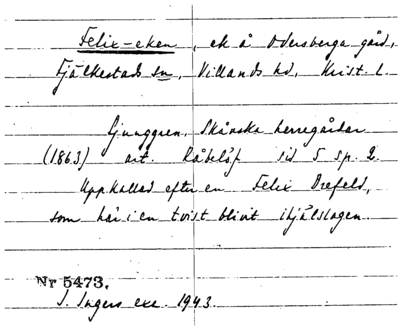 Felix-eken, ek å Odersberga gård,
Fjälkestads sn, Villands hd, Krist. l.
Ljunggren, Skånska herregårdar
(1863) art. Råbelöf sid 5 sp. 2.
Uppkallad efter en Felix Drefeld,
som här i en tvist blivit ihjälslagen.
Nr 5473.
I. Ingers exc. 1943.